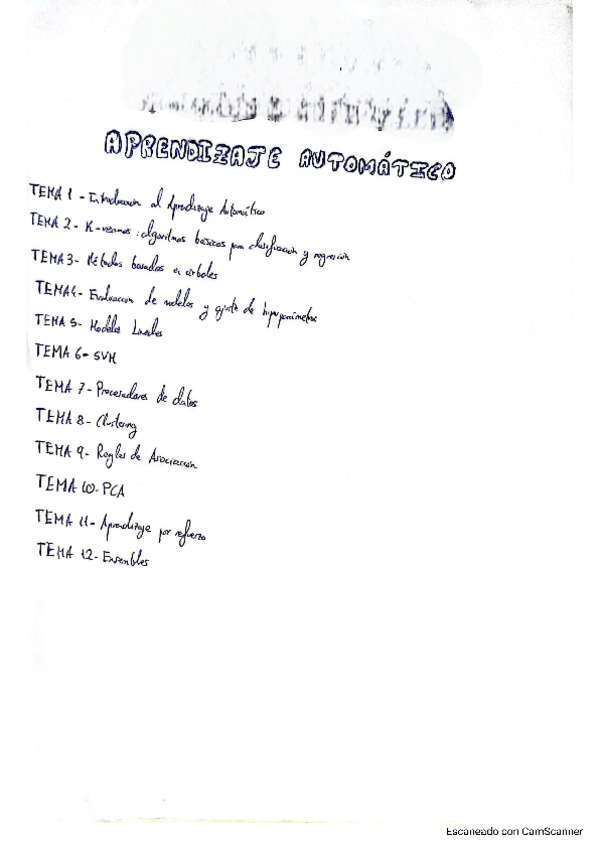 APRENDIZAJE AUTOMÁTICO
TEMA 1 - Introducción al Aprendizaje Automático
TEMA 2 - K-vecinos: algoritmos básicos para clasificación y regresión
TEMA 3- Métodos basados en árboles
TEMA 4- Evaluación de modelos y ajuste de hiperparámetros
TEMA 5- Modelos Lineales
TEMA 6- SVM
TEMA 7- Procesadores de datos
TEMA 8- Clustering
TEMA 9- Reglas de Asociación
TEMA 10- PCA
TEMA 11- Aprendizaje por refuerzo
TEMA 12- Ensembles
Escaneado con CamScanner